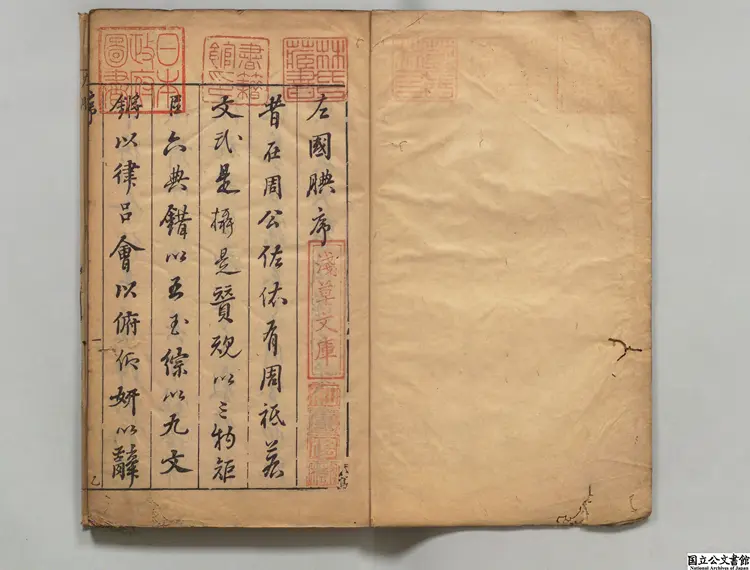 左國腴序
昔在周公佐佑有周祗若
文武是攝是贊規以三物矩
㠯六典錯以五玉綜以九文
鏘以律呂會以俯仰妍以辭
林氏藏書
書籍館印
日本政府圖書
淺草文庫
序
国立公文書館
National Archives of Japan